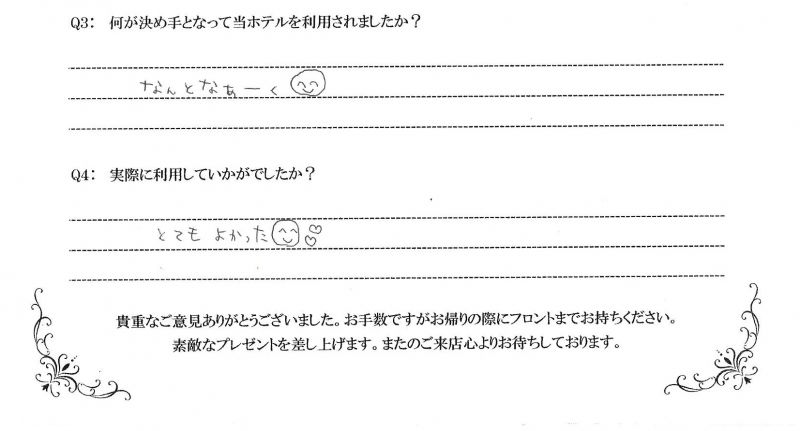 Q3: 何が決め手となって当ホテルを利用されましたか？
なんとなぁーく
Q4: 実際に利用していかがでしたか？
とても よかった
貴重なご意見ありがとうございました。お手数ですがお帰りの際にフロントまでお持ちください。
素敵なプレゼントを差し上げます。またのご来店心よりお待ちしております。